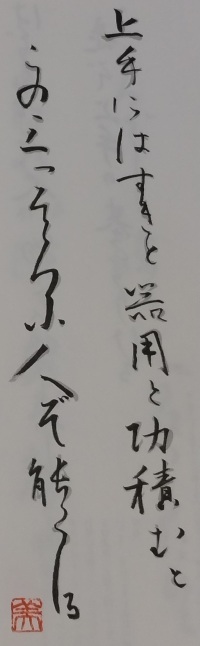 上手にはすきと器用と功積むと
この三つそろふ人ぞ能くしる